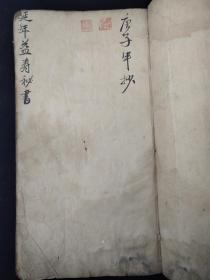 庚子年抄
延年益寿秘書